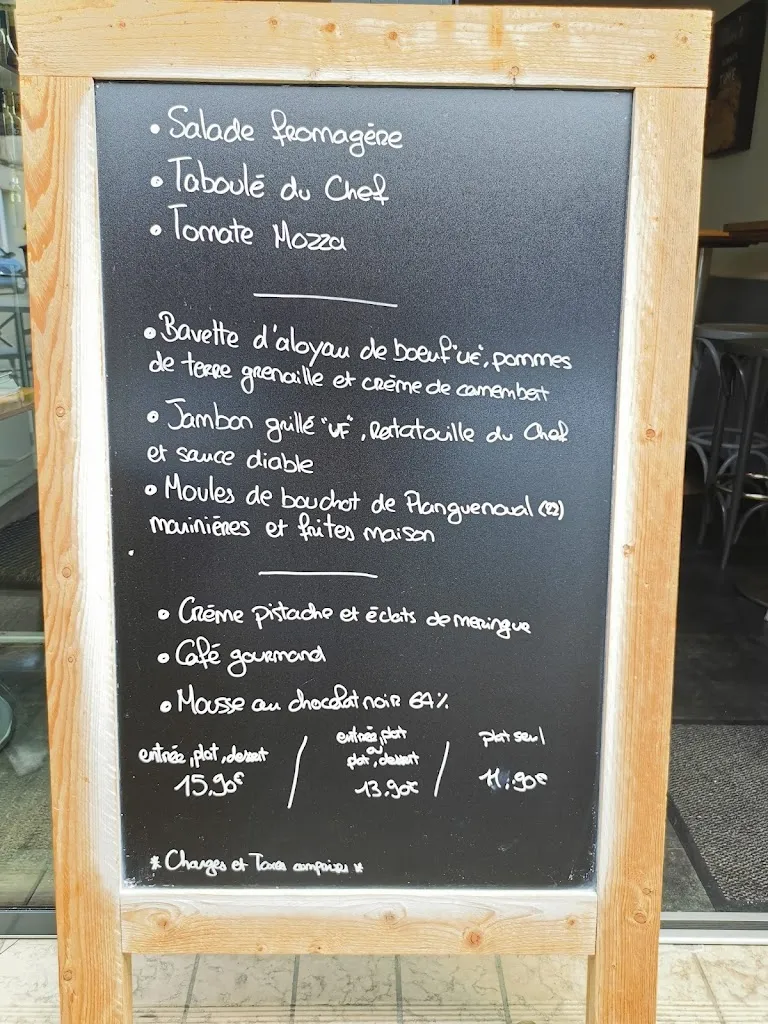 • Salade fromagère
• Taboulé du Chef
• Tomate Mozza
• Bavette d'aloyau de boeuf "UE", pommes
de terre grenaille et crème de camembert
• Jambon grillé "VF", Ratatouille du Chef
et sauce diable
• Moules de bouchot de Planguenoual (22)
marinières et frites maison
• Crème pistache et éclats de meringue
• Café gourmand
• Mousse au chocolat noir 64%
entrée, plat, dessert
15.90€
/
entrée, plat
ou
plat, dessert
13.90€
/
plat seul
11.90€
* Charges et Taxes comprises *